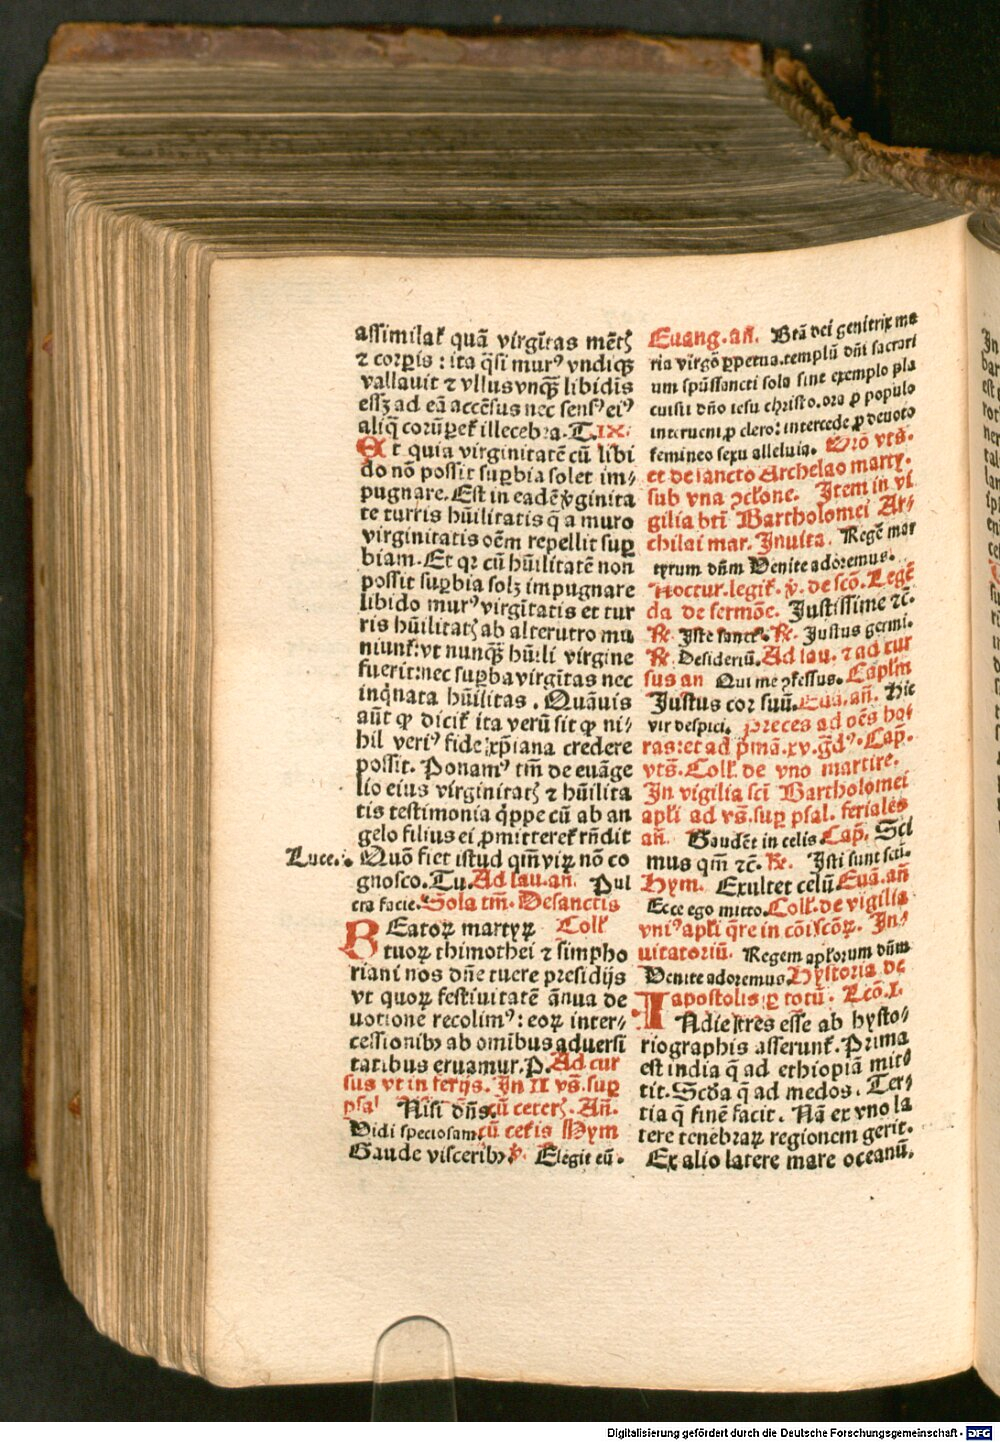 assimilat᷒ quā virgītas mētꝭ
⁊ corpis : ita q̄si murꝰ vndiqꝫ
vallauit ⁊ vllus vnqꝫ libidis
essꝫ ad eā accēsus nec sensꝰ eiꝰ
aliq̄ corūpet᷒ illecebra. T. IX.
Et quia virginitatē cū libi
do nō possit supbia solet im-
pugnare. Est in eadē v̓ginita
te turris hūilitatis q̄ a muro
virginitatis oēm repellit sup
biam. Et qꝛ cū hūilitatē non
possit supbia solꝫ impugnare
libido murꝰ virgītatis et tur
ris hūilitatꝭ ab alterutro mu
niunt᷒: vt nunqꝫ hūili virgine
fuerit: nec supba virgītas nec
inq̄nata hūilitas . Quāuis
aūt ꝙ dicit᷒ ita verū sit ꝙ ni-
hil veriꝰ fide xp̄iana credere
possit. Ponamꝰ tm̄ de euāge
lio eius virginitatꝭ ⁊ hūilita
tis testimonia q̄ppe cū ab an
gelo filius ei ꝓmitteret᷒ rn̄dit
Luce. Quō fiet istud qm̄ virꝝ nō co
gnosco. Tu. Ad lau. an̄. Pul
cra facie. Sola tm̄. De sanctis
Beatoꝝ martyꝝ Coll᷒
tuoꝝ thimothei ⁊ simpho
riani nos dn̄e tuere presidijs
vt quoꝝ festiuitatē ānua de
uotione recolimꝰ: eoꝝ inter-
cessionibꝫ ab omībus aduersi
tatibus eruamur. P. Ad cur
sus vt in ferijs. In II vs̄. sup
psal᷒ Nisi dn̄s. cū ceterꝭ. An̄.
Vidi speciosam. cū cet᷒is Hym
Gaude visceribꝫ. v̓. Elegit eū.
Euang. an̄. Btā dei genitrix ma
ria virgo ꝑpetua. templū dn̄i sacrari
um spūssancti sola sine exemplo pla
cuisti dn̄o iesu christo. ora ꝓ populo
interueni ꝓ clero: intercede ꝓ deuoto
femineo sexu alleluia. Orō vts̄.
et de sancto Archelao marty.
sub vna ↄclōne. Item in vi
gilia bt̄i Bartholomei Ar-
chilai mar. Inuita. Regē mar
tyrum dn̄m Venite adoremus.
Noctur. legit᷒. v̓. de scō. Legē
da de sermōe. Justissime ⁊c.
R̷. Iste sanct᷒. R̷. Justus germi.
R̷. Desideriū. Ad lau. ⁊ ad cur
sus an Qui me ↄfessus. Caplm̄
Justus cor suū. Eua. an̄. Hic
vir despici. Preces ad oēs ho-
ras: et ad p̄mā. xv. gd̄ꝰ. Cap̄.
vts̄. Coll᷒. de vno martire.
In vigilia scī Bartholomei
apl᷒i ad vs̄. sup psal. feriales
an̄. Gaudēt in celis Cap̄. Sci
mus qm̄ ⁊c. R̷. Isti sunt scti.
Hym. Exultet celū Euā. an̄
Ecce ego mitto. Coll᷒. de vigilia
vniꝰ apl᷒i q̄re in cōi scōꝝ. In-
uitatoriū. Regem apl᷒orum dn̄m
Venite adoremus. Hystoria de
apostolis ꝑ totū. Lcō. I.
Indie tres esse ab hysto-
riographis asserunt᷒. Prima
est india q̄ ad ethiopiā mit-
tit. Scd̄a q̄ ad medos. Ter-
tia q̄ finē facit. Nā ex vno la
tere tenebraꝝ regionem gerit.
Ex alio latere mare oceanū.
Digitalisierung gefördert durch die Deutsche Forschungsgemeinschaft - DFG